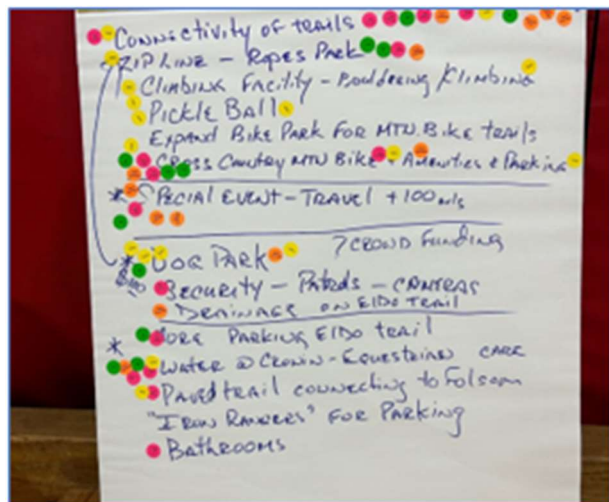 CONNECTIVITY OF TRAILS
ZIP LINE - ROPES PARK
CLIMBING FACILITY - BOULDERING/CLIMBING
PICKLE BALL
EXPAND BIKE PARK FOR MTN. BIKE TRAILS
CROSS COUNTRY MTN BIKE + AMENITIES & PARKING
* SPECIAL EVENT - TRAVEL +100 mls
? CROWD FUNDING
* DOG PARK
SECURITY - PATROLS - CAMERAS
DRAINAGE ON ElDo TRAIL
* MORE PARKING ElDo TRAIL
WATER @ CRONIN - EQUESTRIAN CARE
PAVED trail connecting to FOLSOM
"IRON RANGERS" FOR PARKING
BATHROOMS